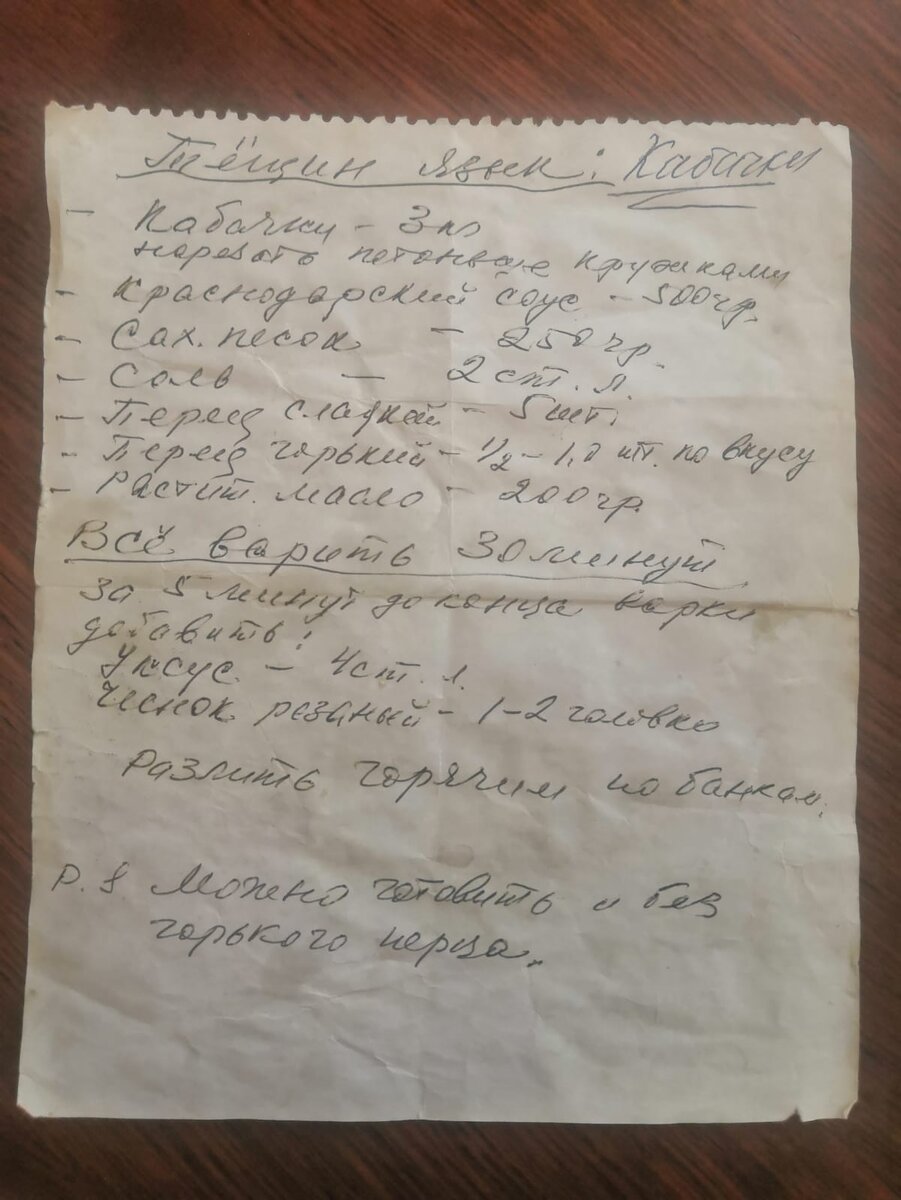 Тёщин язык: Кабачки
- Кабачки - 3кг
нарезать потоньше кружками
- Краснодарский соус - 500гр.
- Сах. песок - 250гр
- Соль - 2 ст. л.
- Перец сладкий - 5шт.
- Перец горький - 1/2 - 1,0 шт. по вкусу
- Растит. масло - 200гр.
Всё варить 30 минут
За 5 минут до конца варки
добавить:
Уксус - 4ст. л.
Чеснок резаный - 1-2 головки
Разлить горячим по банкам.
P.S Можно готовить и без
горького перца.